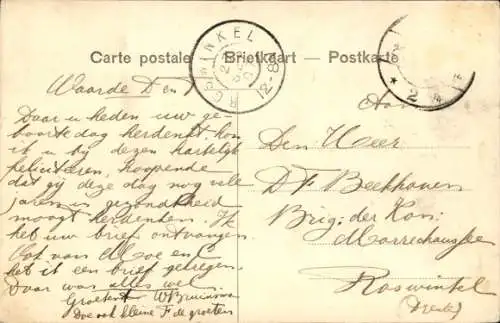 Carte postale — Briefkaart — Postkarte
ROSWINKEL
12-8
2
Waarde D en
Daar u heden uw ge-
boortedag herdenkt kom
ik u bij dezen hartelijk
feliciteren, hoopende
dat gij deze dag nog vele
jaren in gezondheid
moogt herdenken. Ik
heb uw brief ontvangen.
Ook van Moe en
heb ik een brief gekregen.
Daar was alles wel.
Groetend W Bruinsma
Doe ook kleine F de groeten
Aan
Den Heer
D F Beekhoven
Brig: der Kon:
Marechaussee
Roswinkel
(Drente)